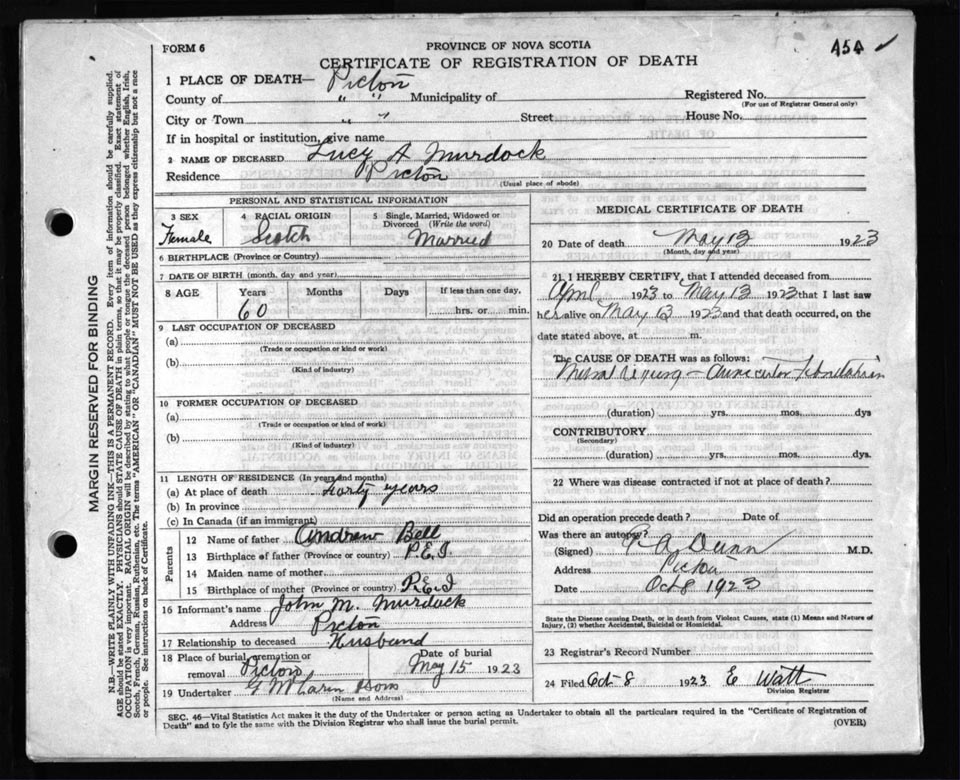 FORM 6
PROVINCE OF NOVA SCOTIA
454
CERTIFICATE OF REGISTRATION OF DEATH
1 PLACE OF DEATH— Pictou
County of " " Municipality of Registered No.
(For use of Registrar General only)
City or Town " " Street House No.
If in hospital or institution, give name
2 NAME OF DECEASED Lucy A Murdock
Residence Pictou
(Usual place of abode)
PERSONAL AND STATISTICAL INFORMATION
3 SEX 4 RACIAL ORIGIN 5 Single, Married, Widowed or Divorced (Write the word)
Female Scotch Married
6 BIRTHPLACE (Province or Country)
7 DATE OF BIRTH (month, day and year)
8 AGE Years Months Days If less than one day,
60 hrs. or min.
9 LAST OCCUPATION OF DECEASED
(a)
(Trade or occupation or kind or work)
(b)
(Kind of industry)
10 FORMER OCCUPATION OF DECEASED
(a)
(Trade or occupation or kind of work)
(b)
(Kind of industry)
11 LENGTH OF RESIDENCE (In years and months)
(a) At place of death Forty years
(b) In province
(c) In Canada (if an immigrant)
Parents
12 Name of father Andrew Bell
13 Birthplace of father (Province or country) P.E.I.
14 Maiden name of mother
15 Birthplace of mother (Province or country) P.E.I
16 Informant's name John M. Murdock
Address Pictou
17 Relationship to deceased Husband
18 Place of burial, cremation or removal Pictou Date of burial May 15 1923
19 Undertaker
(Name and Address)
MEDICAL CERTIFICATE OF DEATH
20 Date of death May 13 1923
(Month, day and year)
21 I HEREBY CERTIFY, that I attended deceased from
April 1923 to May 13 1923 that I last saw
her alive on May 13 1923 and that death occurred, on the
date stated above, at m.
The CAUSE OF DEATH was as follows:
(duration) yrs. mos. dys
CONTRIBUTORY
(Secondary)
(duration) yrs. mos. dys.
22 Where was disease contracted if not at place of death?
Did an operation precede death? Date of
Was there an autopsy?
(Signed) A Dunn M.D.
Address Pictou
Date Oct 8 1923
State the Disease causing Death, or in death from Violent Causes, state (1) Means and Nature of
Injury, (2) whether Accidental, Suicidal or Homicidal.
23 Registrar's Record Number
24 Filed Oct - 8 1923 E Watt
Division Registrar
SEC. 46—Vital Statistics Act makes it the duty of the Undertaker or person acting as Undertaker to obtain all the particulars required in the "Certificate of Registration of
Death" and to fyle the same with the Division Registrar who shall issue the burial permit.
(OVER)
MARGIN RESERVED FOR BINDING
N.B.—WRITE PLAINLY WITH UNFADING INK—THIS IS A PERMANENT RECORD. Every item of information should be carefully supplied.
AGE should be stated EXACTLY. PHYSICIANS should STATE CAUSE OF DEATH in plain terms, so that it may be properly classified. Exact statement of
OCCUPATION is very important. RACIAL ORIGIN will be described by stating to what people or tongue the deceased person belonged whether English, Irish,
Scotch, French, German, Russian, Ruthenian, etc. The terms "AMERICAN" OR "CANADIAN" MUST NOT BE USED as they express citizenship but not a race
or people. See instructions on back of Certificate.